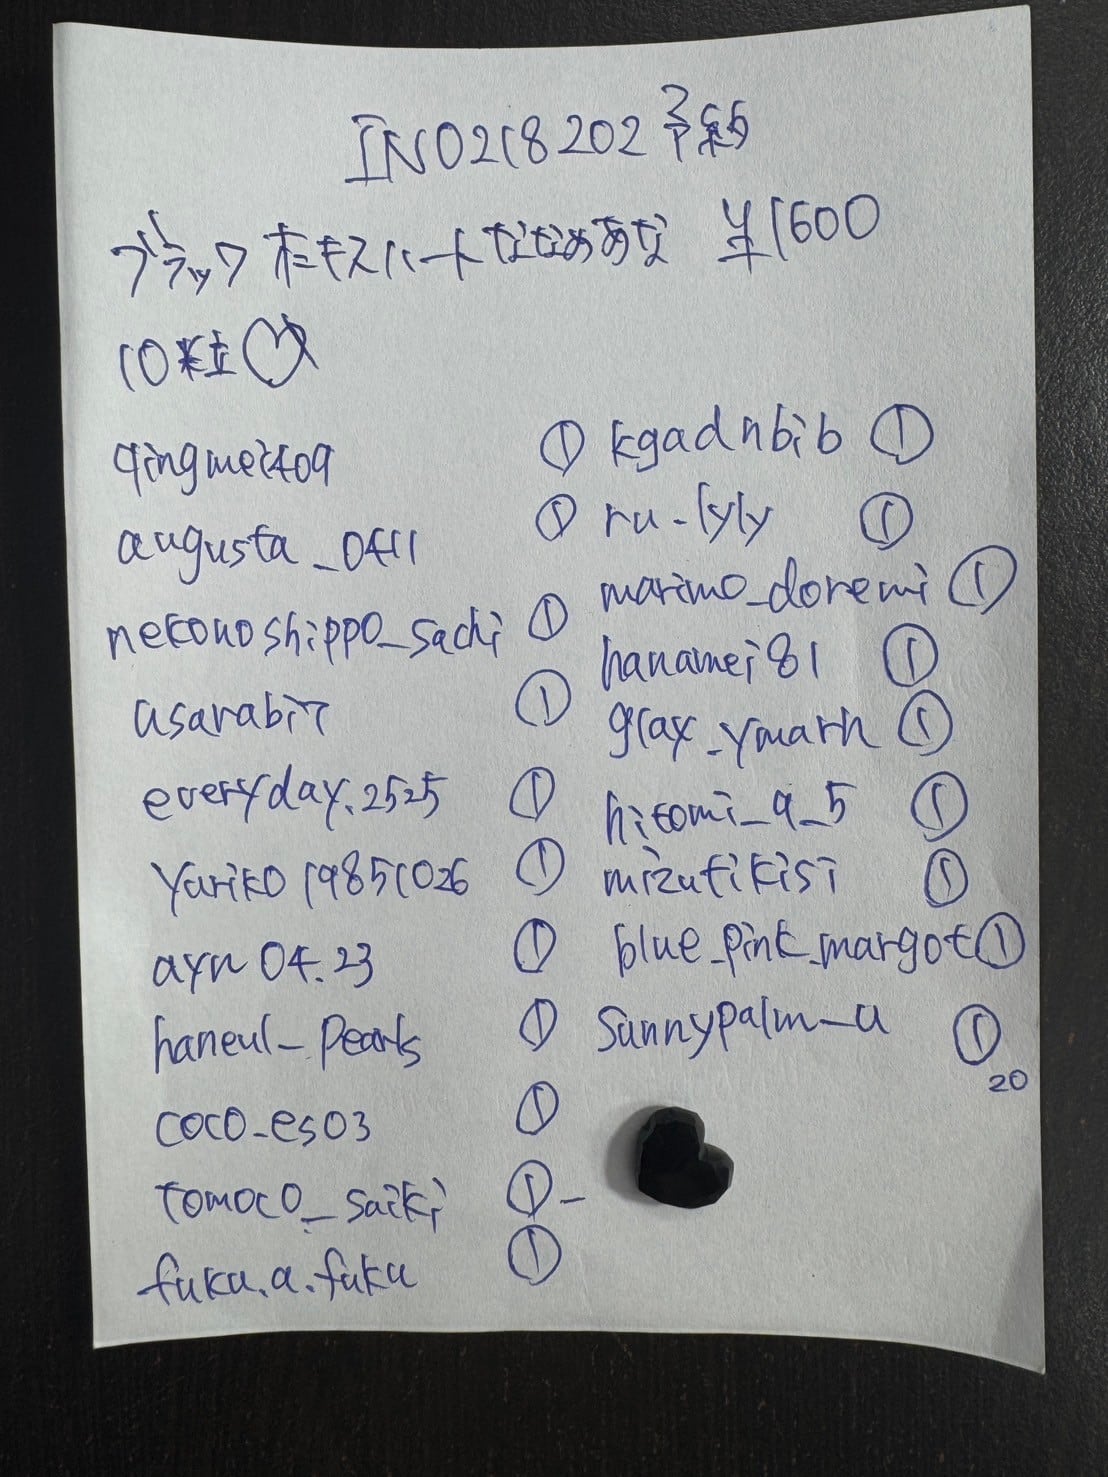 IN0218202予約
ブラックオニキスハートななめあな ¥1600
10粒♡
qingmei409 ①
augusta_0411 ①
nekonoshippo_sachi ①
usarabi7 ①
everyday.2525 ①
yuriko19851026 ①
ayn04.23 ①
haneul_pearls ①
coco_es03 ①
tomoco_saiki ①-
fuku.a.fuku ①
kgadnbib ①
ru-lyly ①
marimo_doremi ①
hanamei81 ①
glax_ymarh ①
hitomi_9_5 ①
mizutikisi ①
blue_pink_margot ①
sunnypalm_u ①
20